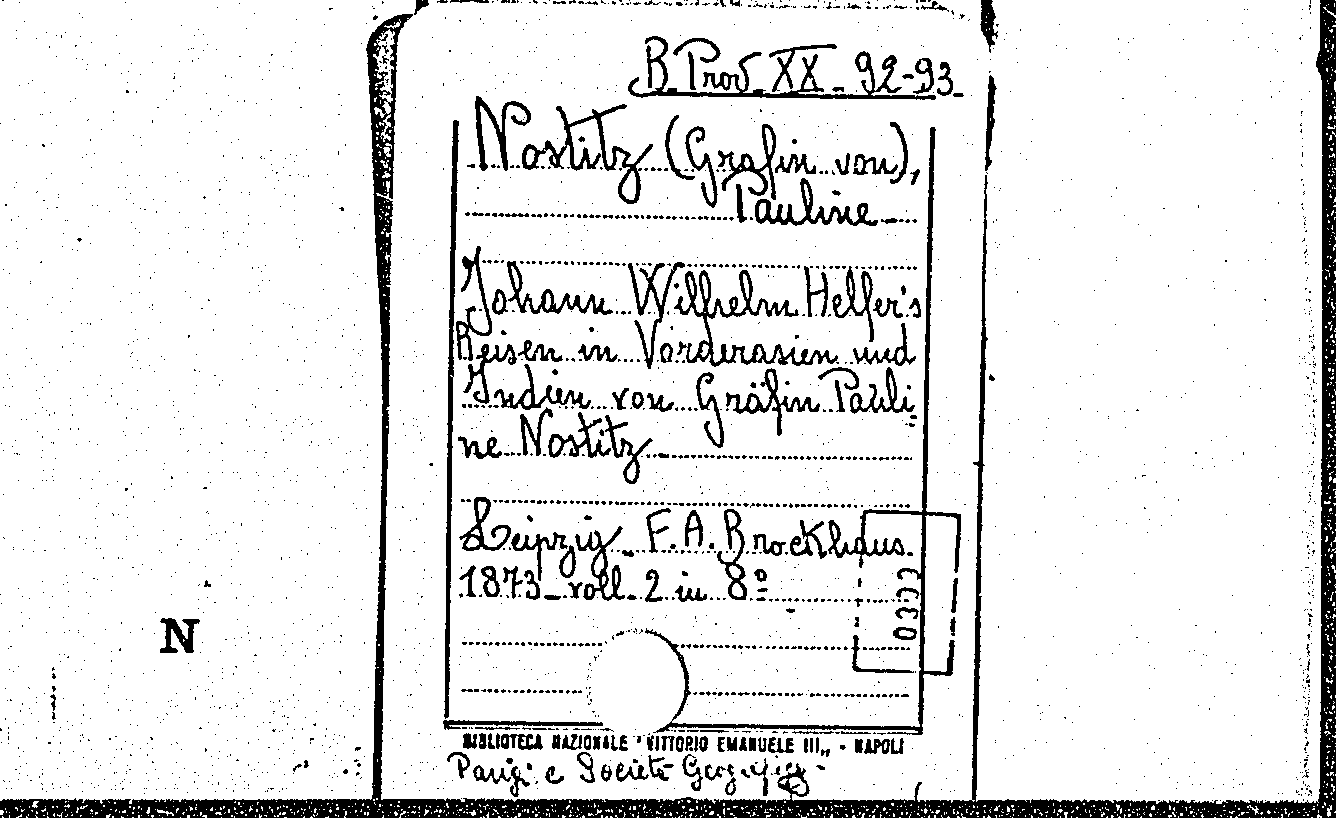 B. Prov. XX. 92-93.
Nostitz (Gräfin von),
Pauline
Johann Wilhelm Helfer's
Reisen in Vorderasien und
Indien von Gräfin Pauli-
ne Nostitz.
Leipzig. F.A. Brockhaus.
1873. voll. 2 in 8º
N
BIBLIOTECA NAZIONALE "VITTORIO EMANUELE III„ - NAPOLI
e Società